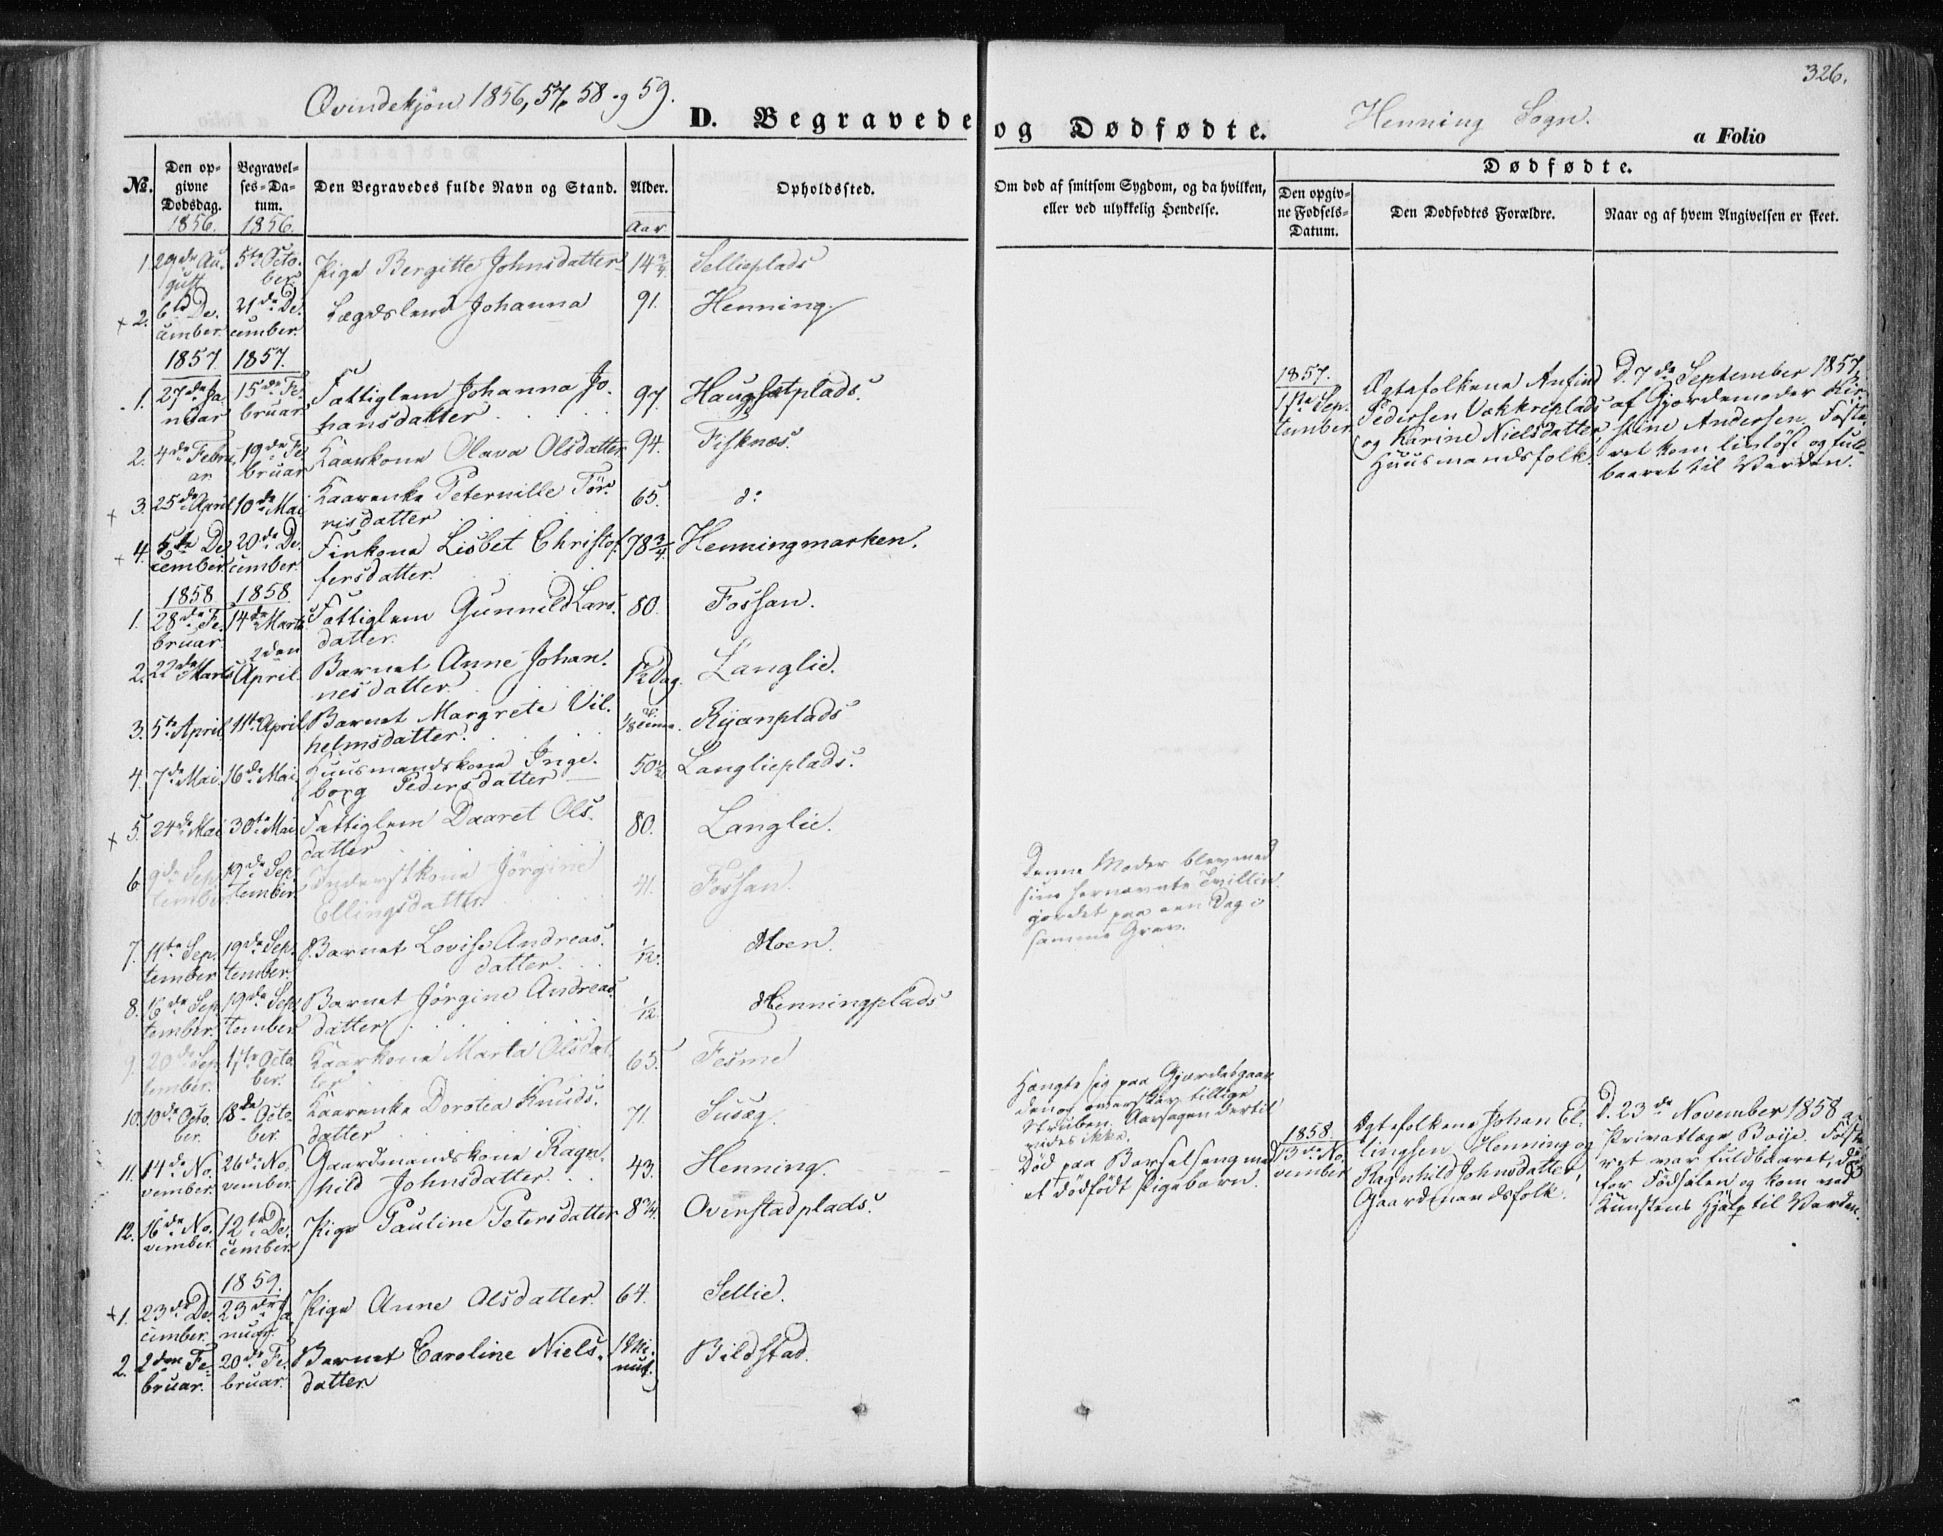 326.
Qvindekjön 1856, 57, 58 og 59.
Henning Sogn.
D. Begravede og Dødfødte.
a Folio
No.
Den opgivne Dødsdag.
Begravelses-Datum.
Den Begravedes fulde Navn og Stand.
Alder.
Opholdssted.
Om død af smitsom Sygdom, og da hvilken, eller ved ulykkelig Hendelse.
Dødfødte.
Den opgivne Fødsels-Datum.
Den Dødfødtes Forældre.
Naar og af hvem Angivelsen er skeet.
1856. 1856. Aar
1. 29de August 5te October Pige Bergitte Johnsdatter 14 3/4 Sellieplads
+ 2. 6te December. 21de December. Lægdslem Johanna 91. Henning
1857 1857.
1. 27de Januar 15de Februar Fattiglem Johanna Johansdatter 97. Haugsetplads.
2. 4de Februar 19de Februar Kaarkone Olava Olsdatter 94. Fisknæs.
+ 3. 25de April 10de Mai Kaarenke Peternille Törrisdatter 65. do
+ 4. 5te December 20de December. Finkone Lisbet Christoffersdatter. 78 3/4 Henningmarken.
1858 1858
1. 28de Februar 14de Marts Fattiglem Gunnild Larsdatter. 80. Fossan.
2. 22de Marts 2den April. Barnet Anne Johannesdatter 1 1/2 Dag. Langlie.
3. 5te April 11te April Barnet Margrete Vilhelmsdatter. Ryanplads
4. 7de Mai 16de Mai. Huusmandskone Ingeborg Pedersdatter 50 1/2 Langlieplads.
+ 5. 24de Mai 30te Mai Fattiglem Daaret Olsdatter 80. Langlie.
6. 9de September 19de September. Jörgine Ellingsdatter 41. Fossan.
Denne Moder blev med
sine hernævnte Tvillin.
jordet paa een Dag i
samme Grav.
7. 11te September 19de September. Barnet Lovise Andreasdatter. 1/12. Moen.
8. 16de September. 19de September Barnet Jörgine Andreasdatter 1/12 Henningplads
9. 20de September. 1ste October. Kaarkone Marta Olsdatter 65. Fesme
10. 10de October. 18de October. Kaarenke Dorotea Knudsdatter 71. Susæg.
Hængte sig paa Gjærdesgaar
den og overskar tillige
Struben. Aarsagen dertil
vides ikke.
11. 14de November. 26de November. Gaardmandskone Ragnhild Johnsdatter. 43. Henning.
Død paa Barselseng med
et dödfödt Pigebarn.
12. 16de November. 12te December. Pige Pauline Petersdatter 8 3/4. Overstadplads.
1859.
+ 1. 23de December. 23de Januar. Pige Anne Olsdatter. 64. Sellie.
2. 2den Februar. 20de Februar. Barnet Caroline Nielsdatter 1 Minut. Bildstad.
1857.
1ste September
Ægtefolkene Anfind
Pedersen Vækkreplads
og Karine Nielsdatter,
Huusmandsfolk.
D. 7de September 1857
af Gjordemoder Kir-
stine Andersen. Foste-
ret kom livlöst og fuld-
baaret til Verden.
1858.
13de November
Ægtefolkene Johan El-
lingsen Henning og
Ragnhild Johnsdatter,
Gaardmandsfolk.
D. 23de November 1858 af
Privatlæge Boije. Foste-
ret var fuldbaaret, död
før Fødselen og kom ved
Kunstens Hjælp til Verden.